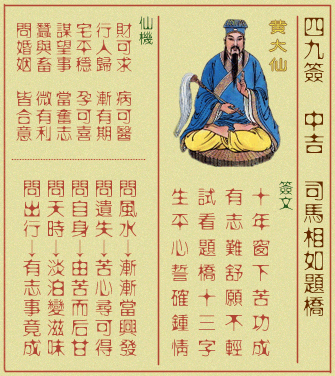 四九簽　中吉　司馬相如題橋
黃大仙
簽文
十年窗下苦功成
有志難舒願不輕
試看題橋十三字
生平心誓確鍾情
仙機
財可求　病可醫
行人歸　漸有期
宅平穩　孕可喜
謀望事　當奮志
蠶與畜　微有利
問婚姻　皆合意
問風水→漸漸當興發
問遺失→苦心尋可得
問自身→由苦而后甘
問天時→淡泊變滋味
問出行→有志事竟成